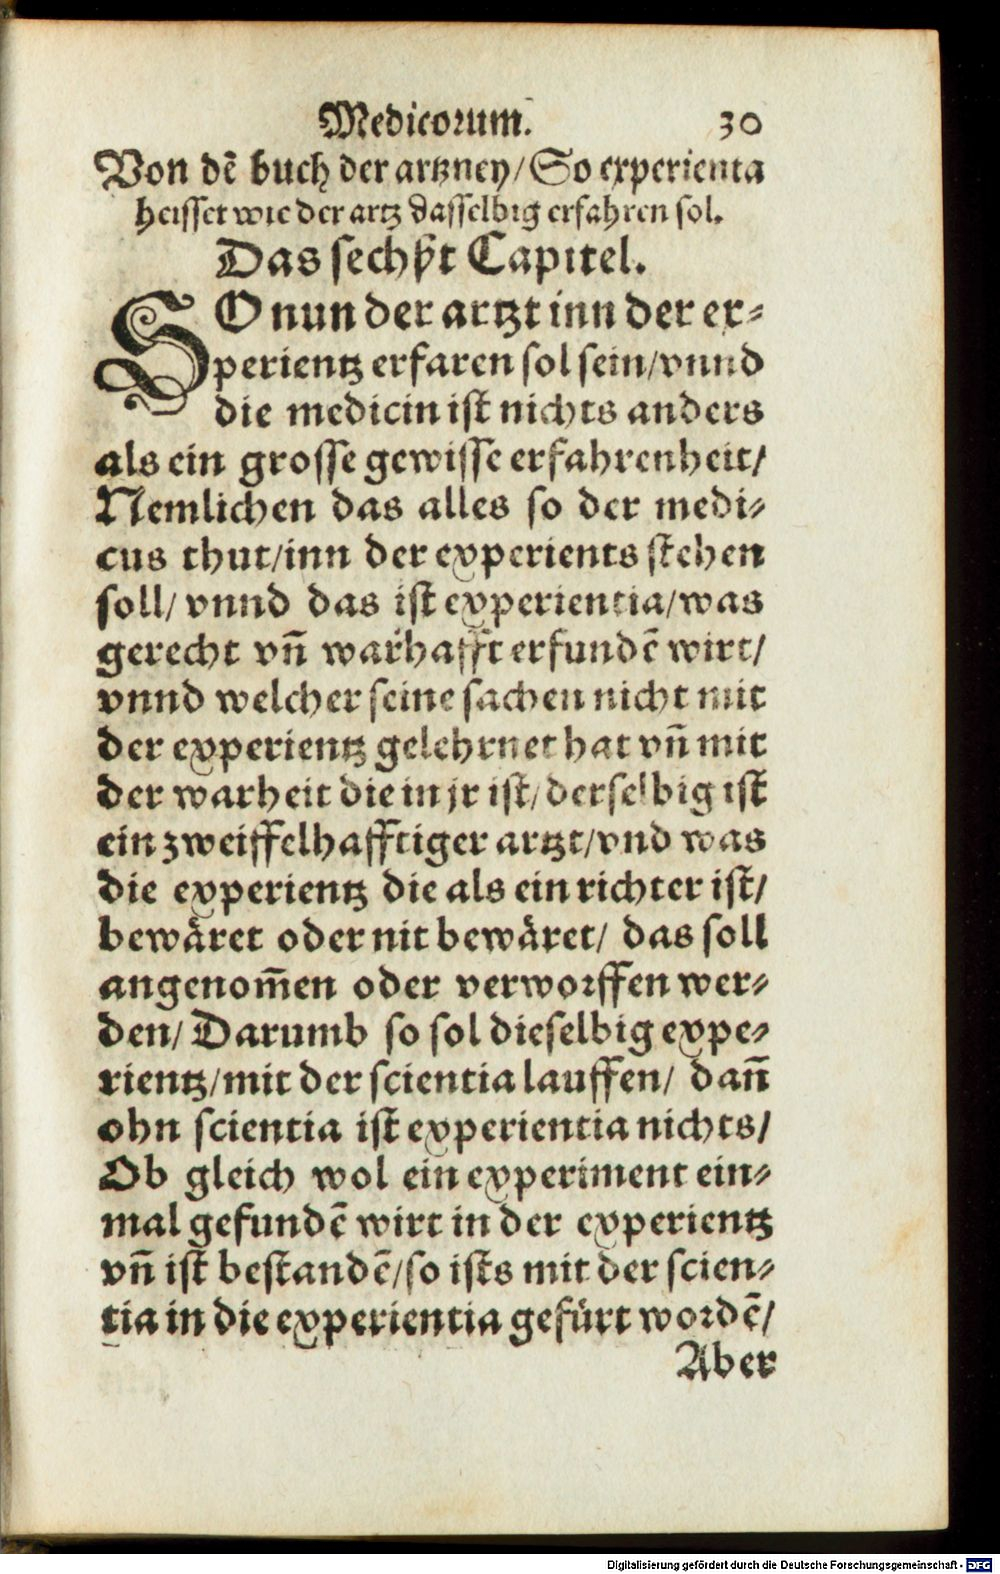 Medicorum. 30
Von dē buch der artzney/ So experienta
heisset wie der artz dasselbig erfahren sol.
Das sechßt Capitel.
SO nun der artzt inn der ex⸗
perientz erfaren sol sein/vnnd
die medicin ist nichts anders
als ein grosse gewisse erfahrenheit/
Nemlichen das alles so der medi⸗
cus thut/inn der experients stehen
soll/ vnnd das ist experientia/was
gerecht vñ warhafft erfundē wirt/
vnnd welcher seine sachen nicht mit
der experientz gelehrnet hat vñ mit
der warheit die in jr ist/derselbig ist
ein zweiffelhafftiger artzt/vnd was
die experientz die als ein richter ist/
bewäret oder nit bewäret/ das soll
angenom̄en oder verworffen wer⸗
den/ Darumb so sol dieselbig expe⸗
rientz/mit der scientia lauffen/ dañ
ohn scientia ist experientia nichts/
Ob gleich wol ein experiment ein⸗
mal gefundē wirt in der experientz
vñ ist bestandē/so ists mit der scien⸗
tia in die experientia gefürt wordē/
Aber
Digitalisierung gefördert durch die Deutsche Forschungsgemeinschaft - DFG